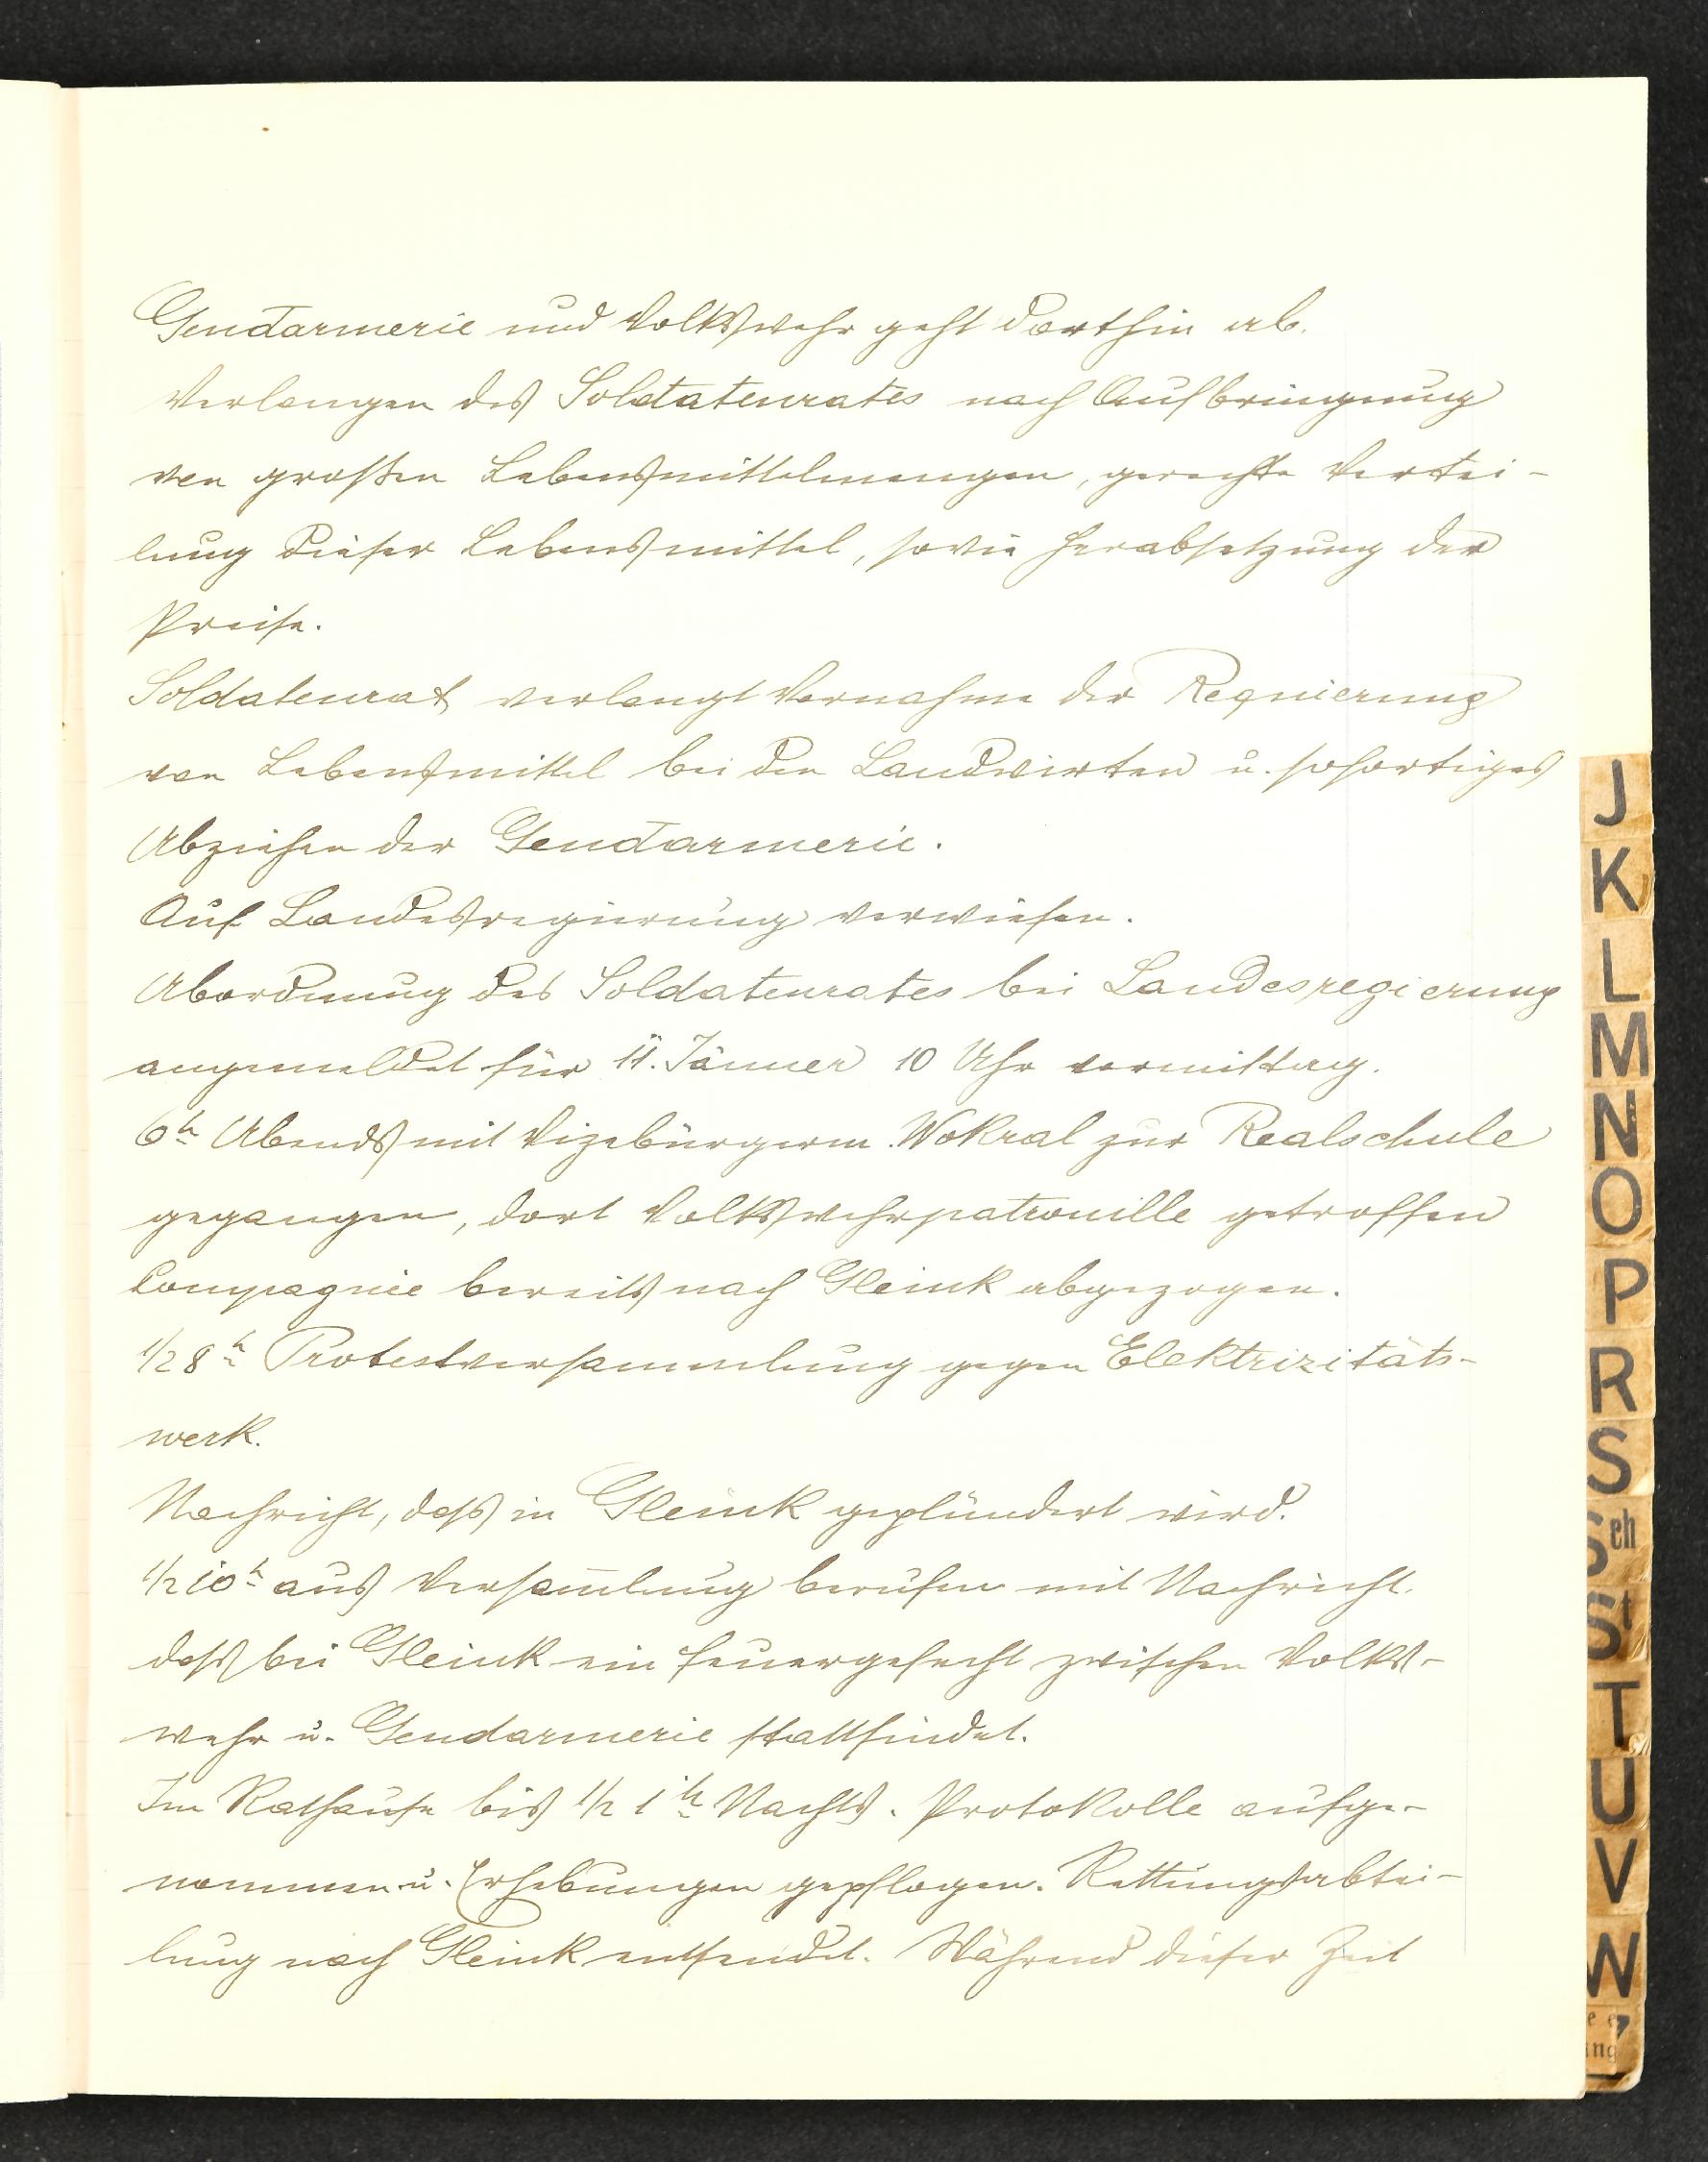 Gendarmerie und Volkswehr geht dorthin ab.
Verlangen des Soldatenrates nach Aufbringung
von großen Lebensmittelmengen, gerechte Vertei-
lung dieser Lebensmittel, sowie Herabsetzung der
Preise.
Soldatenrat verlangt Vornahme der Reqnierung
von Lebensmittel bei den Landwirten u. sofortiges
Abziehen der Gendarmerie.
Auf Landesregierung verwiesen.
Abordnung des Soldatenrates bei Landesregierung
angemeldet für 11. Jänner 10 Uhr vormittag.
6h Abends mit Vizebürgerm. Wokral zur Realschule
gegangen, dort Volkswehrpatrouille getroffen
Compagnie bereits nach Gleink abgezogen.
1/2 8h Protestversammlung gegen Elektrizitäts-
werk.
Nachricht, daß in Gleink geplündert wird.
1/2 10h aus Versam̅lung berufen mit Nachricht.
daß bei Gleink ein Feuergefecht zwischen Volks-
wehr u. Gendarmerie stattfindet.
Im Rathause bis 1/2 1h Nachts. Protokolle aufge-
nommen u. Erhebungen gepflogen. Rettungsabtei-
lung nach Gleink entsendet. Während dieser Zeit
J
K
L
M
N
O
P
R
S
Sch
St
T
U
V
W